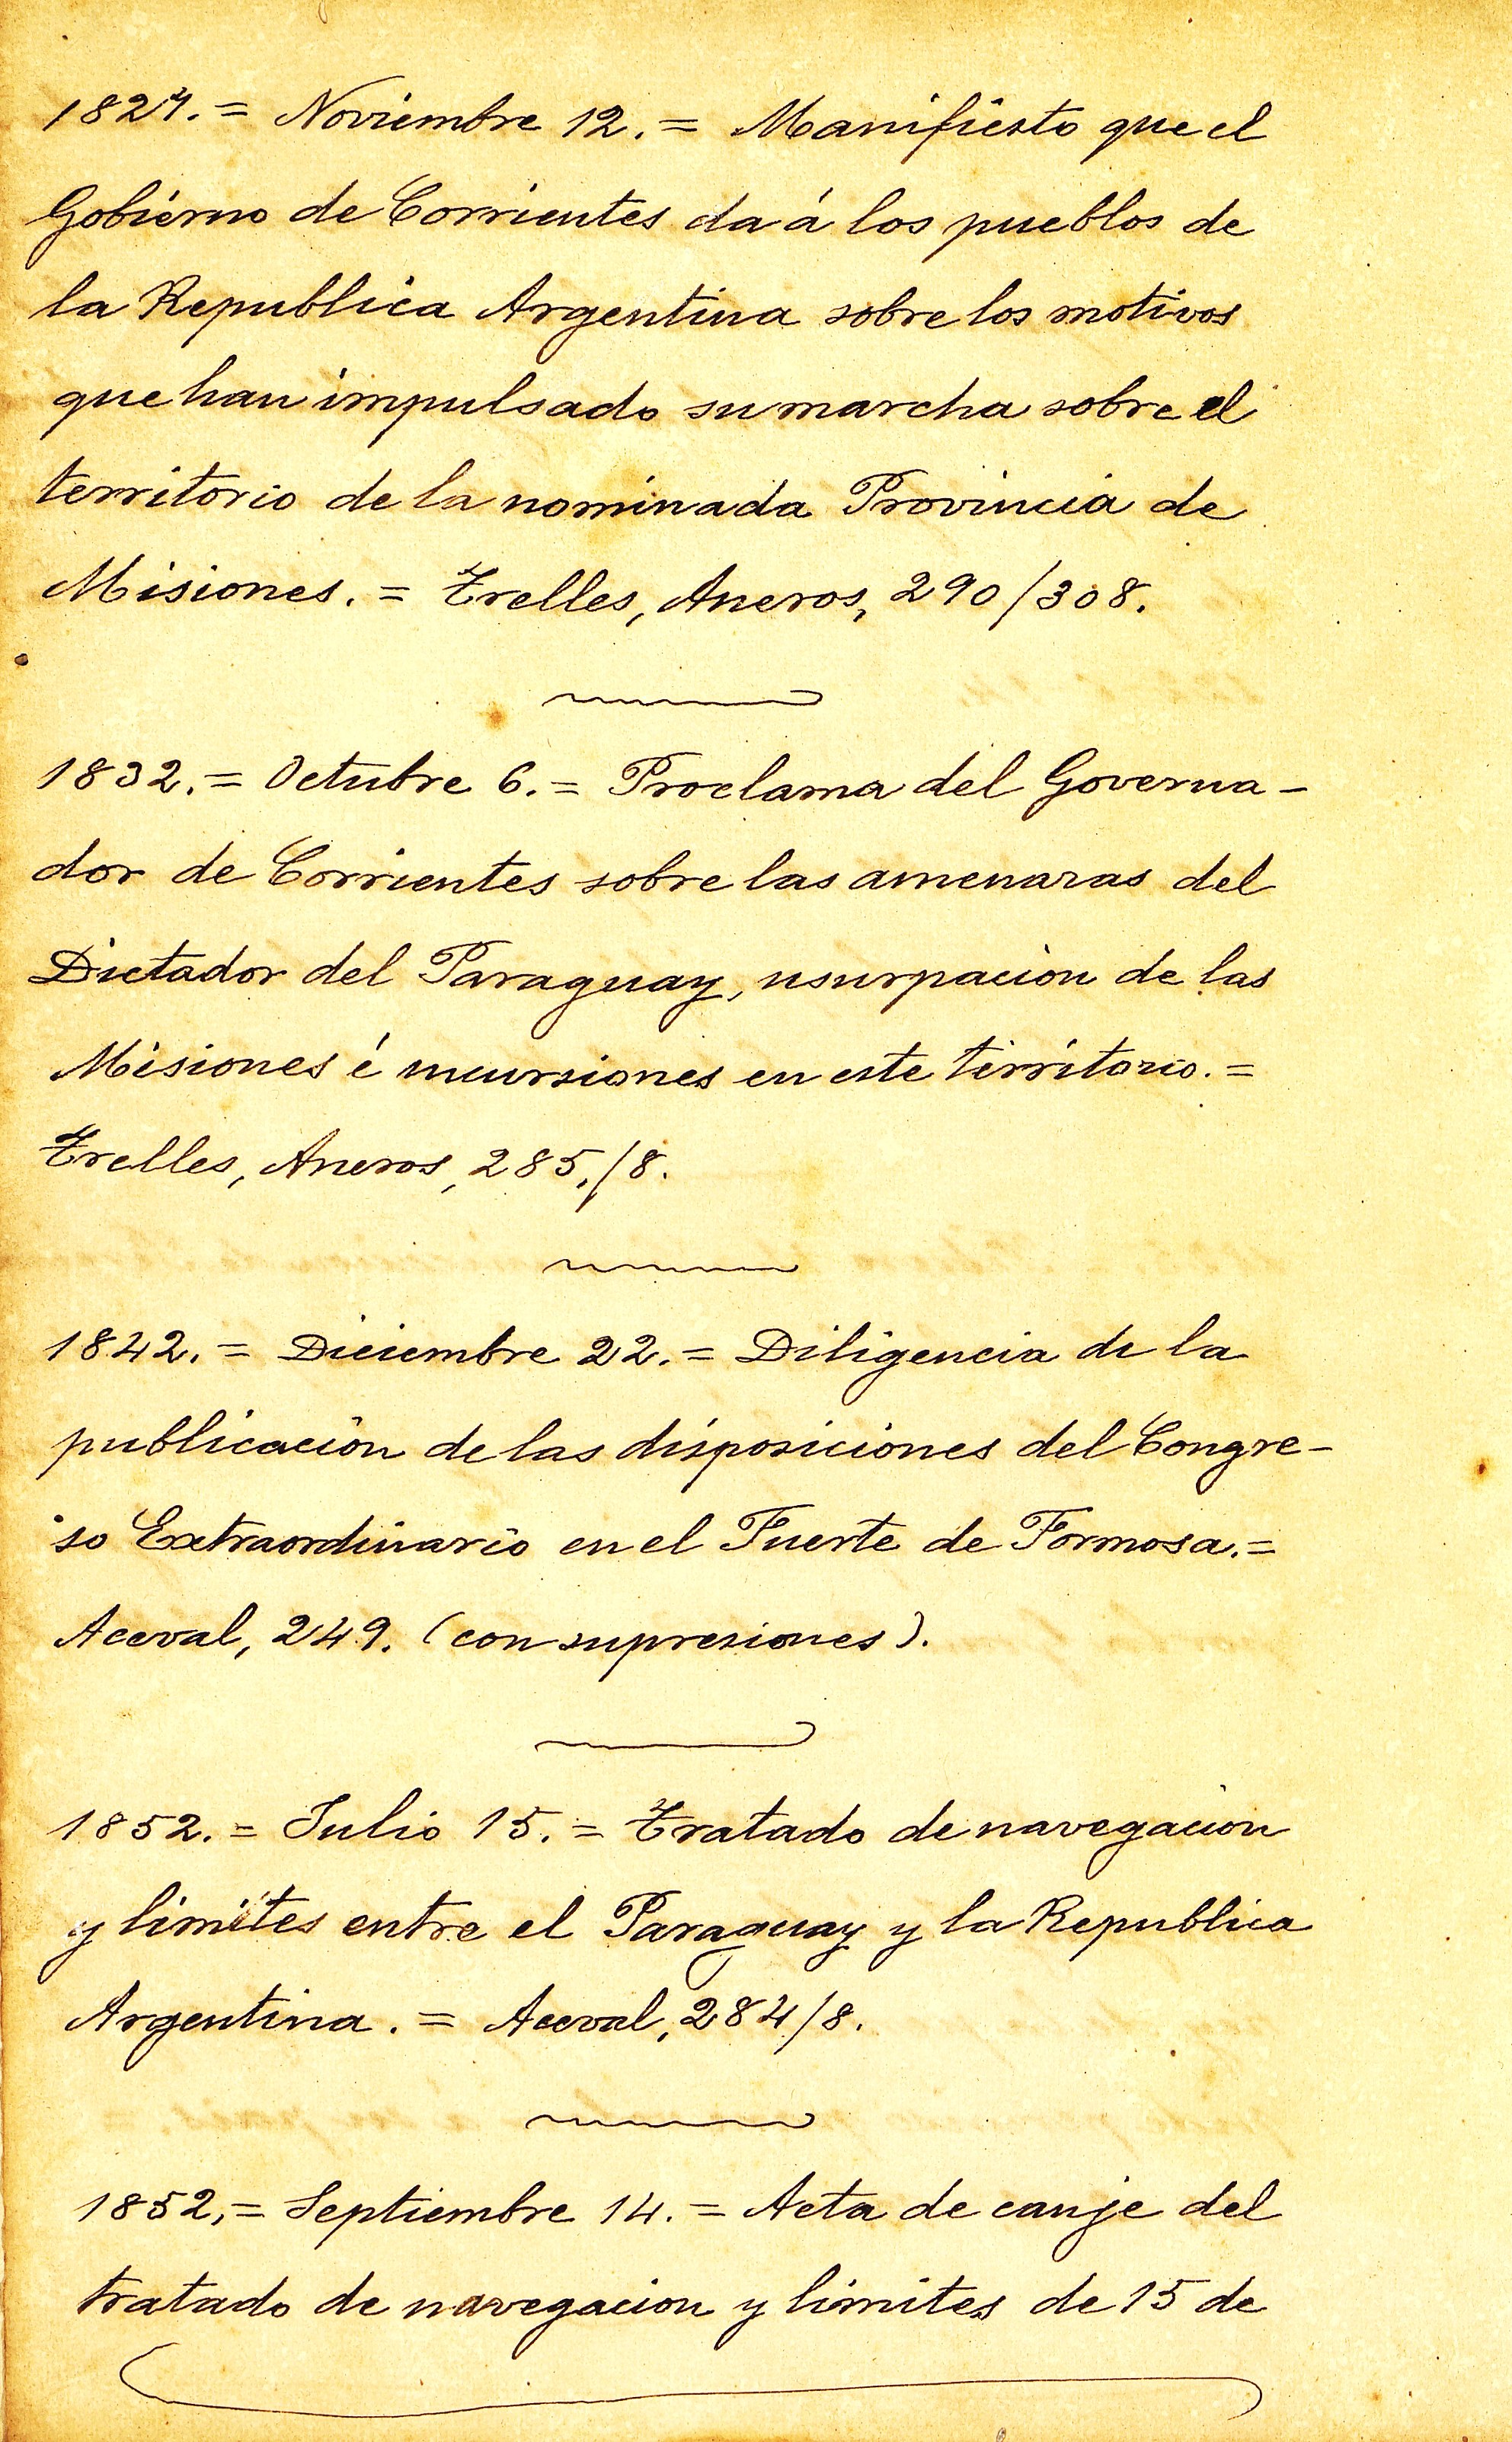 1827. = Noviembre 12. = Manifiesto que el
Gobierno de Corrientes da á los pueblos de
la Republica Argentina sobre los motivos
que han impulsado su marcha sobre el
territorio de la nominada Provincia de
Misiones. = Trelles, Anexos, 290/308.
1832. = Octubre 6. = Proclama del Governa-
dor de Corrientes sobre las amenazas del
Dictador del Paraguay, usurpacion de las
Misiones é incursiones en este territorio. =
Trelles, Anexos, 285,/8.
1842. = Diciembre 22. = Diligencia de la
publicacion de las disposiciones del Congre-
so Extraordinario en el Fuerte de Formosa. =
Aceval, 249. (con supresiones).
1852. = Julio 15. = Tratado de navegacion
y limites entre el Paraguay y la Republica
Argentina. = Aceval, 284/8.
1852, = Septiembre 14. = Acta de canje del
tratado de navegacion y limites de 15 de